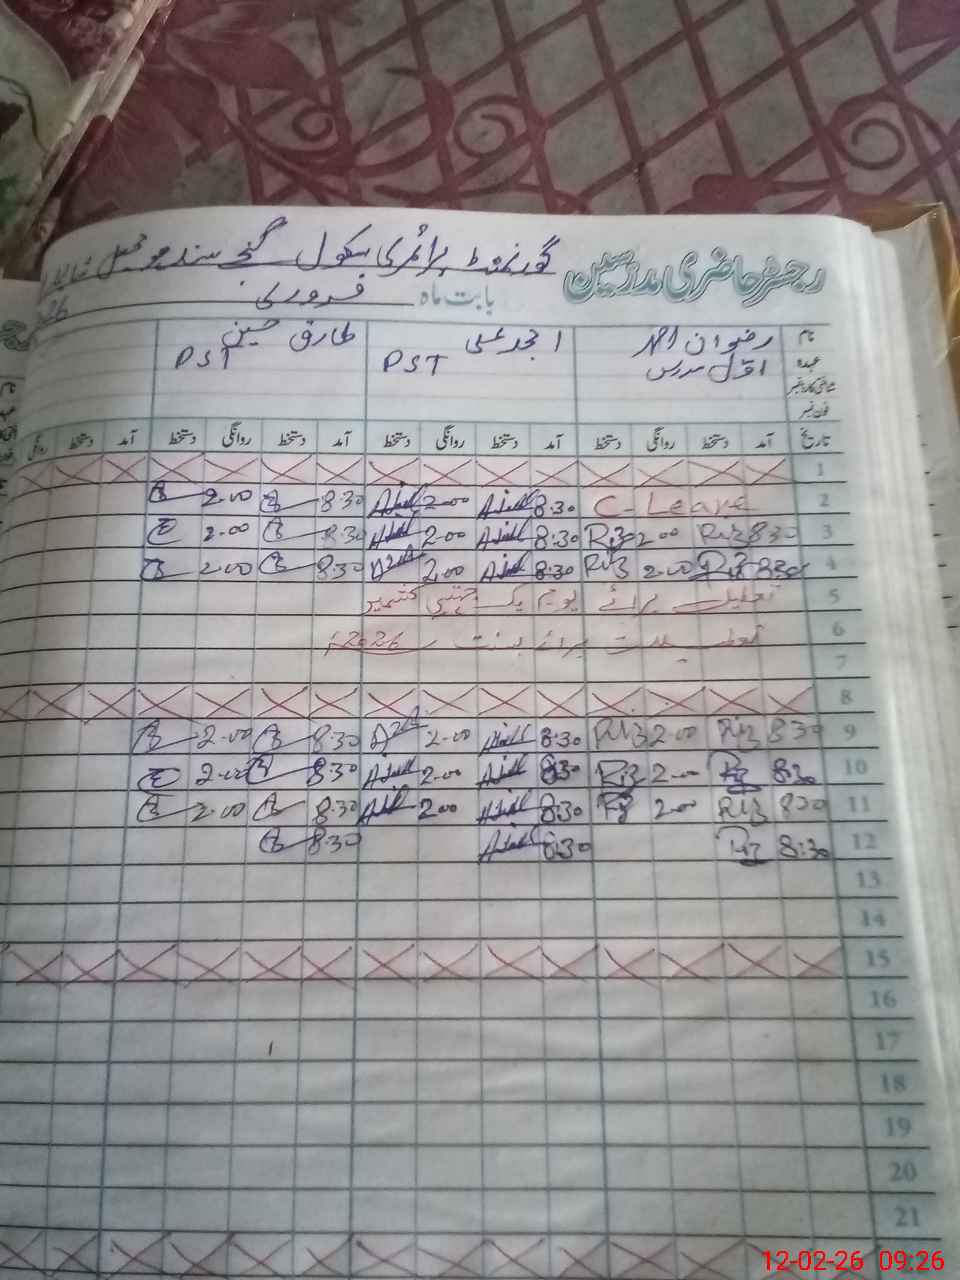 رجسٹر حاضری مدرسین گورنمنٹ پرائمری سکول گنجے سندھو تحصیل
بابت ماہ فروری 26
نام رضوان احمد امجد علی طارق حسین
عہدہ اوّل مدرس PST PST
شناختی کارڈ نمبر
فون نمبر
تاریخ آمد دستخط روانگی دستخط آمد دستخط روانگی دستخط آمد دستخط روانگی دستخط آمد دستخط روانگی
1
2 C-Leave 8:30 2.00 8.30 2.00
3 8:30 Riz 2.00 Riz 8:30 2.00 8.30 2.00
4 8:30 Riz 2.00 Riz 8:30 2.00 8:30 2.00
5 تعطیل برائے یوم یکجہتی کشمیر
6 تعطیلات برائے بسنت 2026ء
7
8
9 8:30 Riz 2.00 Riz 8:30 2.00 8:30 2.00
10 8:30 Riz 2.00 Riz 8:30 2.00 8:30 2.00
11 8:30 Riz 2.00 8:30 2.00 8:30 2.00
12 8:30 Riz 8:30 8:30
13
14
15
16
17
18
19
20
21
12-02-26 09:26